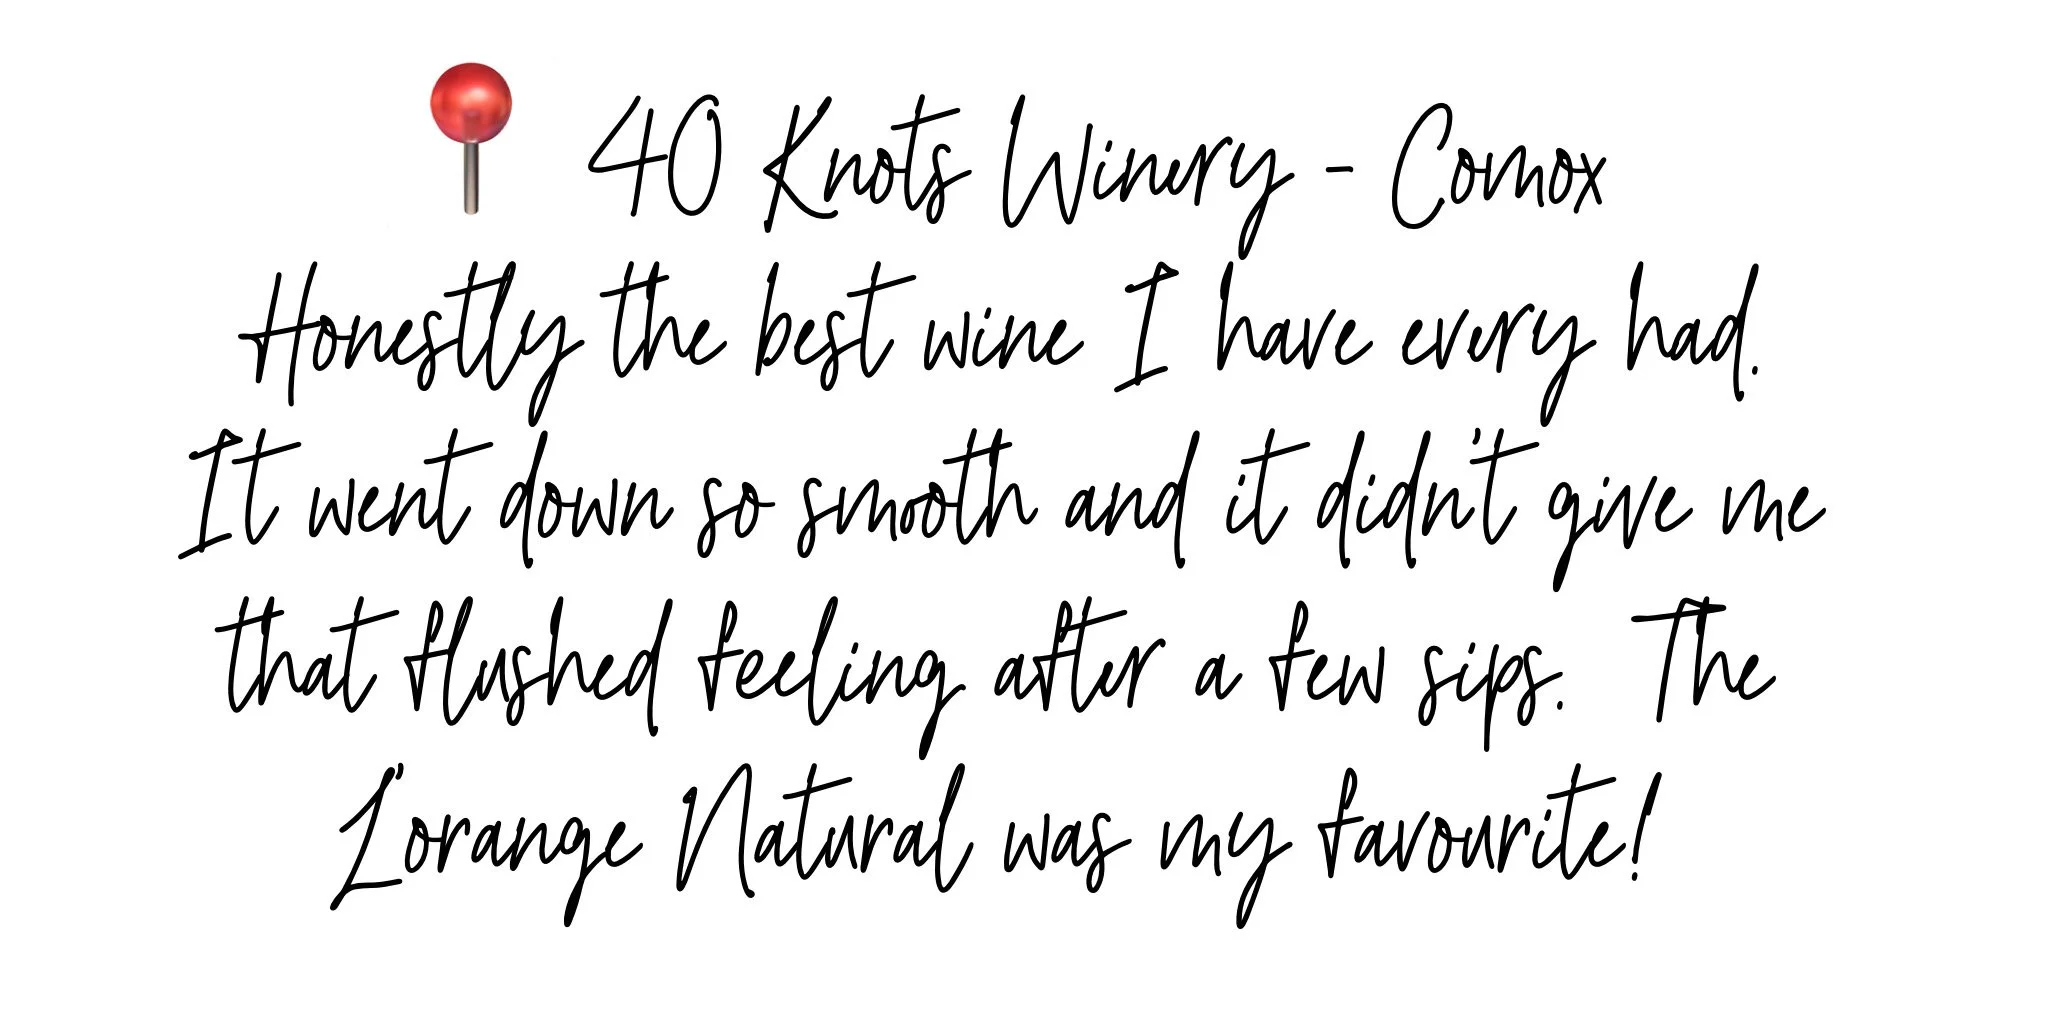 📍 40 Knots Winery - Comox
Honestly the best wine I have every had.
It went down so smooth and it didn't give me
that flushed feeling after a few sips. The
L'orange Natural was my favourite!